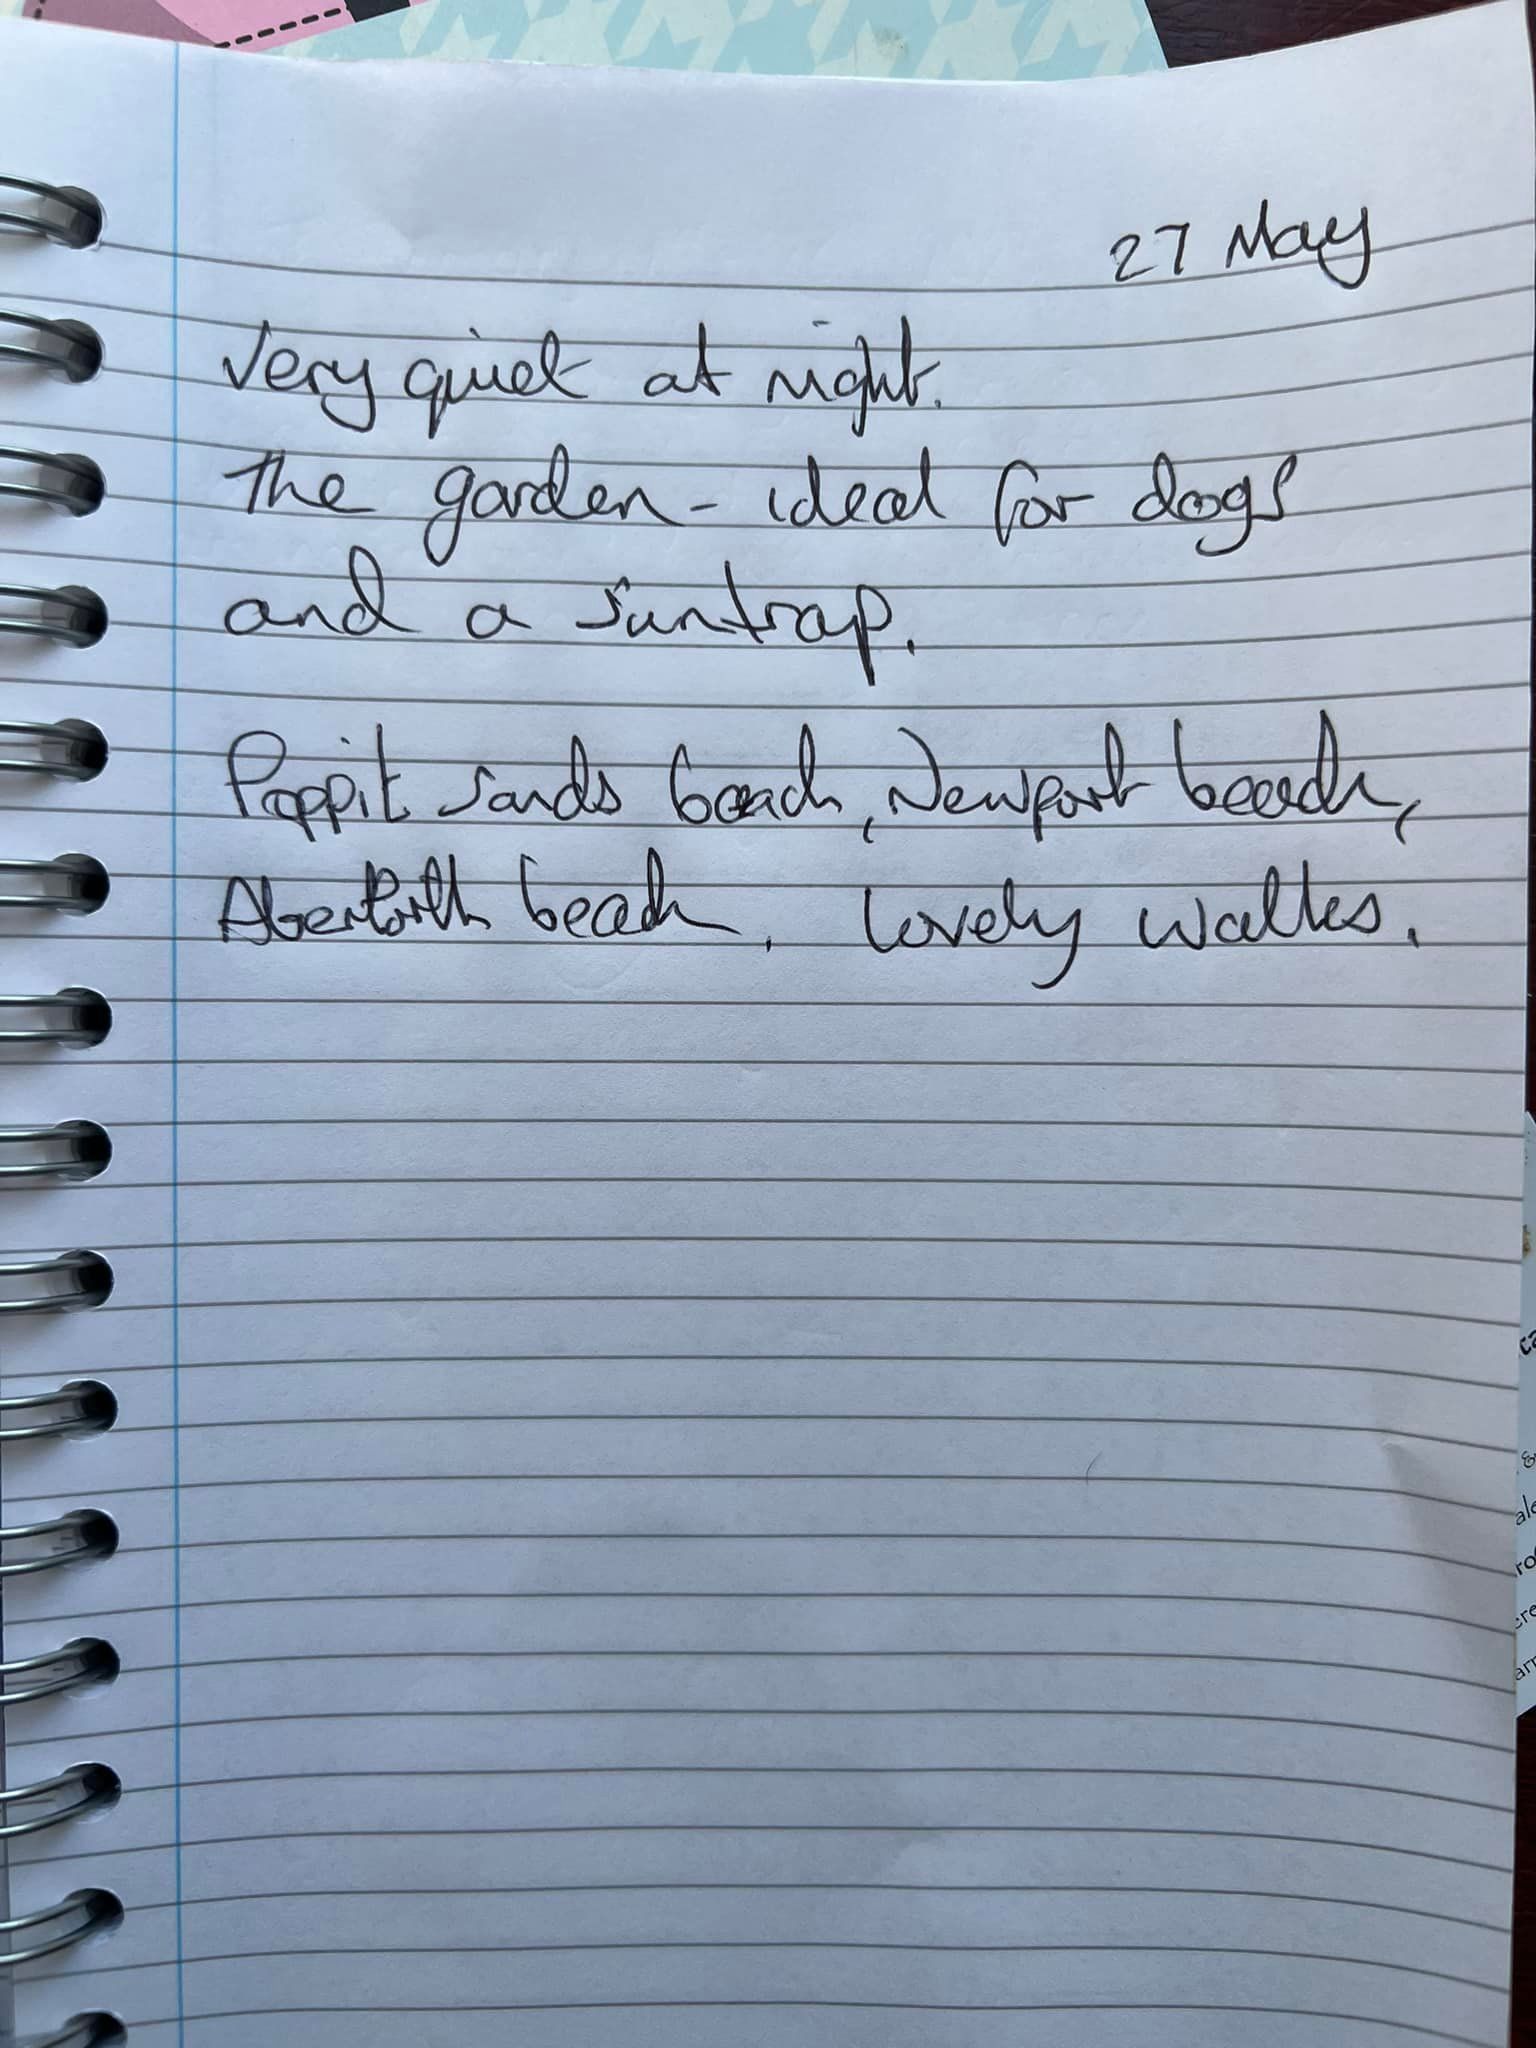 27 May
Very quiet at night.
The garden - ideal for dogs
and a suntrap.
Poppit sands beach, Newport beach,
AberPorth beach. Lovely walks.